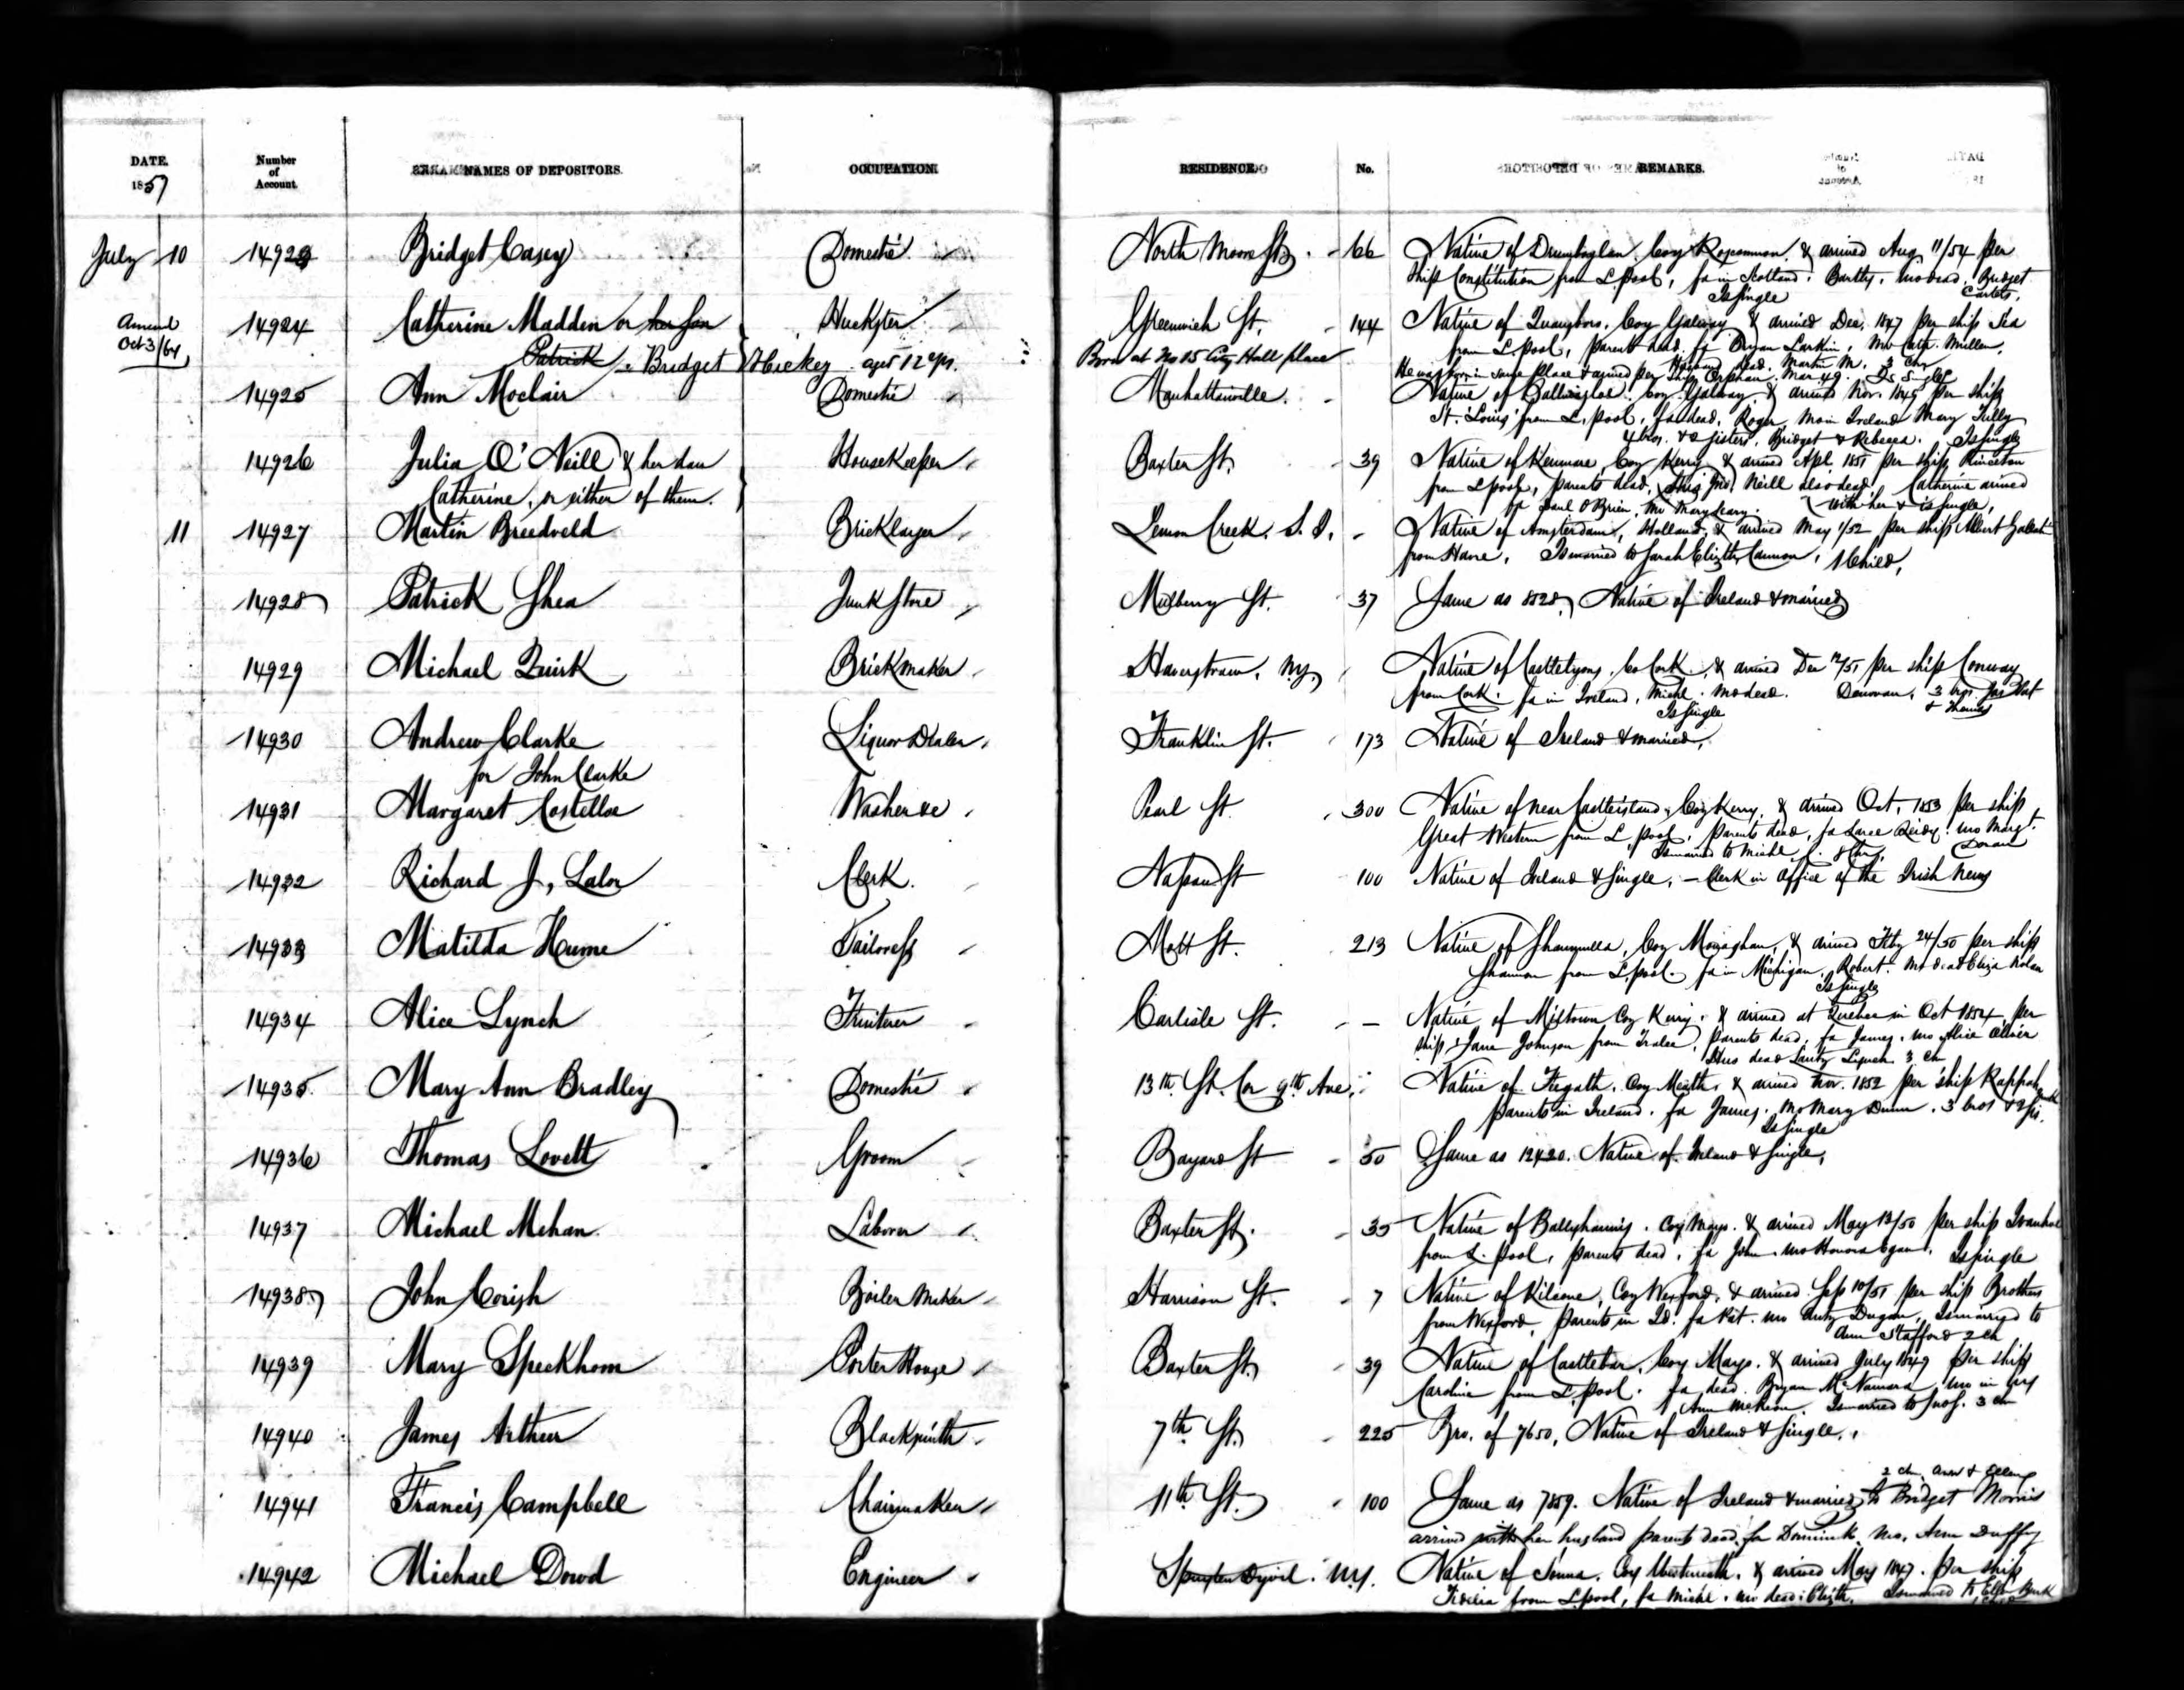 DATE. Number of Account. NAMES OF DEPOSITORS. OCCUPATION. RESIDENCE. No. REMARKS.
1857
July 10 14923 Bridget Casey Domestic North Moore St. 66 Native of Coy Roscommon & arrived Aug 11/54 per
Ship Constitution from L.pool, fa in Scotland. Bartley, mo dead, Bridget
Is single
Amend Oct 3/64 14924 Catherine Madden or her son Huckster Greenwich St. 144 Native of Coy Galway & arrived Dec. 1847 per ship Sea
Patrick - Bridget Hickey aged 12 yrs. Born at No 15 City Hall place from L.pool, parents dead. fa Bryan Larkin, mo Cath. Mullen,
Husband dead. Martin M. 3 chn
He was born in same place & arrived per ship Orphan Mar. 49. Is Single
14925 Ann Moclair Domestic Manhattanville. Native of Ballinasloe, Coy Galway & arrived Nov. 1849 per ship
St. Louis from L.pool, fa dead, Roger, mo in Ireland Mary Tully
4 bros. & 2 sisters, Bridget & Rebecca. Is single
14926 Julia O'Neill & her dau HouseKeeper Baxter St. 39 Native of Kenmare, Coy Kerry & arrived Apl. 1851 per ship Princeton
Catherine, or either of them. from L.pool, parents dead, Neill also dead Catherine arrived
fa Danl O'Brien, mo Mary Leary. with her & is single,
11 14927 Martin Breedveld Bricklayer Lemon Creek. S. I. Native of Amsterdam, Holland, & arrived May 1/52 per ship Albert Gallatin
from Havre, Is married to Sarah Elizth Cannon, 1 Child,
14928 Patrick Shea Junk Store Mulberry St. 37 Same as 8528, Native of Ireland & married
14929 Michael Quirk Brickmaker Haverstraw, N.Y. Native of Castlelyons, Co Cork, & arrived Dec 12/51 per ship Conway
from Cork. fa in Ireland, Michl. mo dead. Donovan, 3 bros. Jas Pat
Is single & Thomas
14930 Andrew Clarke Liquor Dealer Franklin St. 173 Native of Ireland & married,
for John Clarke
14931 Margaret Costelloe Washer &c Pearl St. 300 Native of near Castleisland, Coy Kerry, & arrived Oct. 1853 per ship
Great Western from L.pool, parents dead, fa mo Margt.
Is married to Michl C. Doran
14932 Richard J. Lalor Clerk. Nassau St 100 Native of Ireland & single, - Clerk in office of the Irish News
14933 Matilda Hume Tailoress Mott St. 213 Native of Coy Monaghan, & arrived Feby 24/50 per ship
Shannon from L.pool. fa in Michigan, Robert. mo dead Eliza Nolan
Is single
14934 Alice Lynch Fruiterer Carlisle St. - Native of Miltown Coy Kerry. & arrived at Quebec in Oct 1854, per
ship Jane Johnson from Tralee, parents dead, fa James. mo Alice
Hus dead Lynch 3 ch
14935 Mary Ann Bradley Domestic 13th St. Cor 9th Ave. Native of Coy Meath, & arrived Nov. 1852 per ship
parents in Ireland. fa James, mo Mary Dunn. 3 bros & 2 sis.
Is single
14936 Thomas Lovett Groom Bayard St 50 Same as 12420. Native of Ireland & single,
14937 Michael Mehan Laborer Baxter St. 35 Native of Ballyhaunis, Coy Mayo. & arrived May 13/50 per ship Ivanhoe
from L.pool, parents dead, fa John. mo Honora Egan, Is single
14938 John Corish Boiler Maker Harrison St. 7 Native of Coy Wexford, & arrived Sep 10/51 per ship Brothers
from Wexford, parents in Id. fa Pat. mo Dugan, Is married to
Ann Stafford 2 ch
14939 Mary Speckhom Porter House Baxter St. 39 Native of Castlebar, Coy Mayo. & arrived July 1849 per ship
Caroline from L.pool. fa dead. Bryan McNamara mo in NY
Ann Is married to 3 ch
14940 James Arthur Blacksmith 7th St. 225 Bro. of 7650, Native of Ireland & single.
2 ch. Ann & Ellen
14941 Francis Campbell Chairmaker 11th St. 100 Same as 7859. Native of Ireland & married to Bridget Morris
arrived with her husband parents dead, fa Dominick mo. Ann Duffy
14942 Michael Dowd Engineer Spuyten Dyvil. N.Y. Native of Coy Westmeath. & arrived May 1847. per ship
Fidelia from L.pool, fa Michl. mo dead. Elizth. Is married to Burk